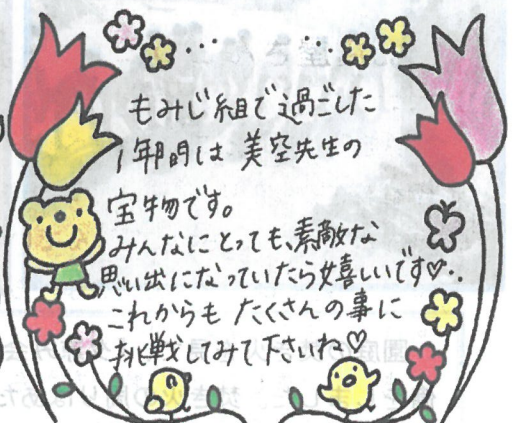 もみじ組で過ごした
1年間は美空先生の
宝物です。
みんなにとっても、素敵な
思い出になっていたら嬉しいです♡..
これからもたくさんの事に
挑戦してみて下さいね♡